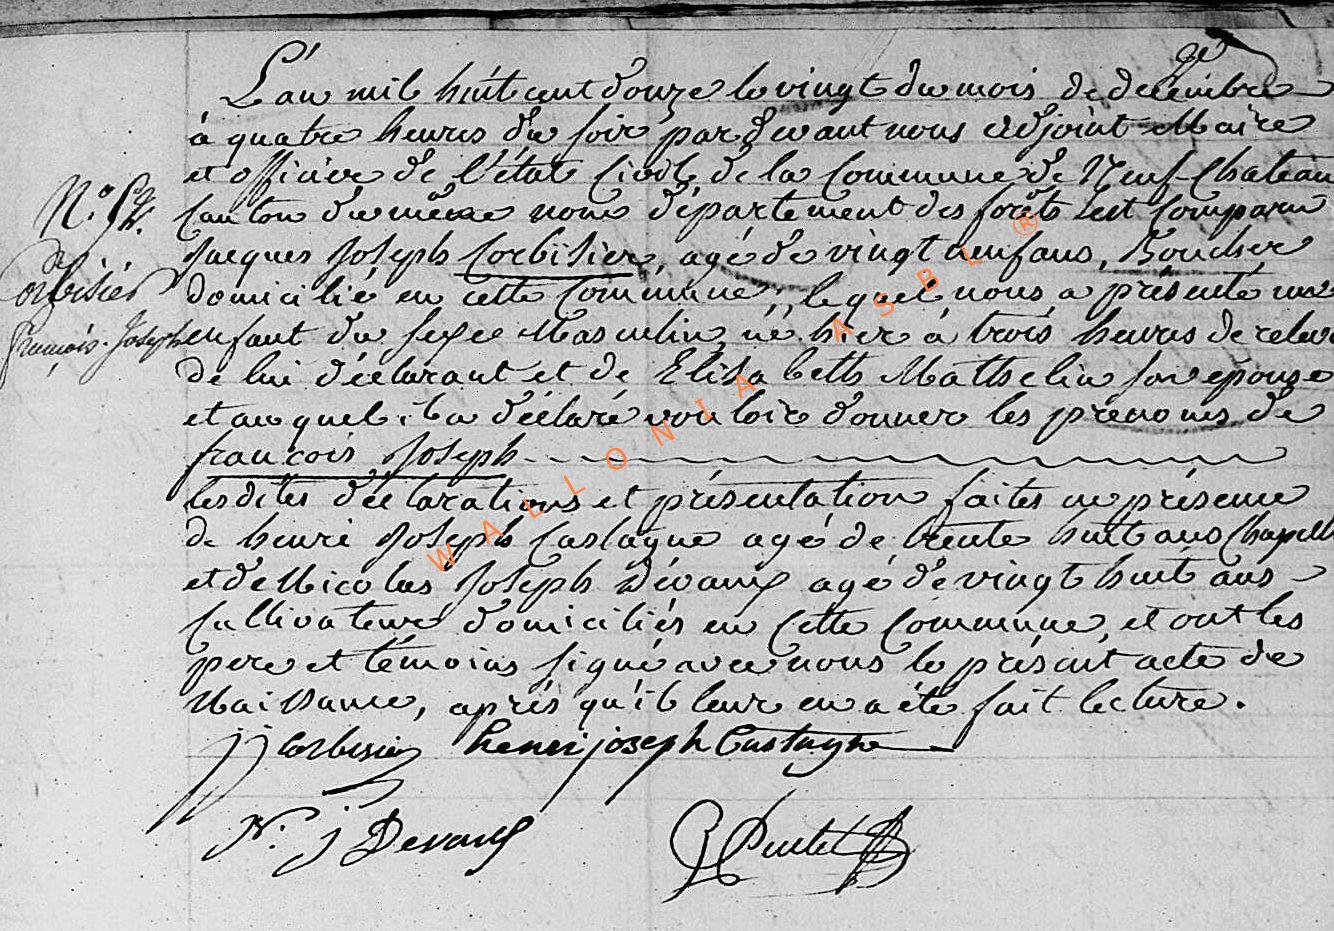 L'an mil huit cent douze le vingt du mois de décembre
à quatre heures du soir par devant nous adjoint Maire
et officier de l'état Civil de la Commune de Neuf-Chateau
Canton du même nom département des forêts est Comparu
Jacques Joseph Corbisier, agé de vingt neuf ans, Boucher
domicilié en cette Commune, lequel nous a présenté un
enfant du sexe Masculin, né hier à trois heures de relevé
de lui déclarant et de Elisabeth Mathelin son épouse
et auquel il a déclaré vouloir donner les prénoms de
françois Joseph
lesdites déclarations et présentation faites en présence
de henri Joseph Castagne agé de trente huit ans
et de Nicolas Joseph Dévaux agé de vingt huit ans
Cultivateurs domiciliés en Cette Commune, et ont les
pere et témoins signé avec nous le présent acte de
Naissance, après qu'il leur en a été fait lecture.
N.º
Corbisier
françois-Joseph
jj Corbisier henri joseph Castagne
N. j Devaux
WALLONIA ASBL ®